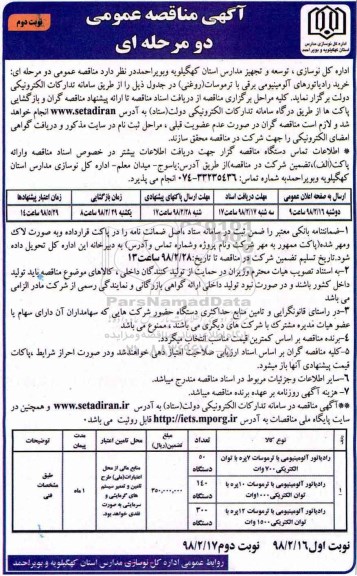 آگهی مناقصه عمومی
دو مرحله ای
نوبت دوم
اداره کل نوسازی مدارس
استان کهگیلویه و بویراحمد
اداره کل نوسازی ، توسعه و تجهیز مدارس استان کهگیلویه وبویراحمددر نظر دارد مناقصه عمومی دو مرحله ای:
خرید رادیاتورهای آلومینیومی برقی با ترموسات(روغنی) در جدول ذیل را از طریق سامانه تدارکات الکترونیکی
دولت برگزار نماید. کلیه مراحل برگزاری مناقصه از دریافت اسناد مناقصه تا ارائه پیشنهاد مناقصه گران و بازگشایی
پاکت ها از طریق درگاه سامانه تدارکات الکترونیکی دولت(ستاد) به آدرس www.setadiran.ir انجام خواهد
شد و لازم است مناقصه گران در صورت عدم عضویت قبلی ، مراحل ثبت نام در سایت مذکور و دریافت گواهی
امضای الکترونیکی را جهت شرکت در مناقصه محقق سازند.
* اطلاعات تماس دستگاه مناقصه گزار جهت دریافت اطلاعات بیشتر در خصوص اسناد مناقصه وارائه
پاکت(الف)،تضمین شرکت در مناقصه)از طریق آدرس:یاسوج- میدان معلم- اداره کل نوسازی مدارس استان
کهگیلویه وبویراحمدبه شماره تماس: ۳۳۲۳۵۴۳۶-۰۷۴ انجام می پذیرد.
ارسال به صفحه اعلان عمومی | مهلت دریافت اسناد | مهلت ارسال پاکتهای پیشنهادی | زمان بازگشایی | زمان اعتبار پیشنهادها
دوشنبه ۹۸/۲/۱۶ ساعت ۹ | سه شنبه ۹۸/۲/۱۷ ساعت ۱۷ | شنبه ۹۸/۲/۲۸ ساعت ۱۲ | یکشنبه ۹۸/۲/۲۹ ساعت ۸ | ۹۸/۵/۲۹ ساعت ۱۴
۱-ضمانتنامه بانکی معتبر را ضمن ثبت در سامانه ستاد ،اصل ضمانت نامه را در پاکت قرارداده وبه صورت لاک
ومهر شده(پاکت ممهور به مهر شرکت ونام پروژه وشماره تماس وآدرس) به دبیرخانه این اداره کل تحویل داده
شود.تاریخ تسلیم تضمین شرکت در مناقصه تا تاریخ: ۹۸/۲/۲۸ ساعت ۱۳
۲-به استناد تصویب هیات محترم وزیران در حمایت از تولید کنندگان داخلی ، کالاهای موضوع مناقصه باید تولید
داخل کشور باشند و در صورت نبود تولید داخلی ارائه گواهی بازرگانی و نمایندگی رسمی از شرکت مادر الزامی
می باشد.
۳-در راستای قانونگرایی و تامین منابع حداکثری دستگاه حضور شرکت هایی که سهامداران آن دارای سهام یا
عضو هیات مدیره مشترک با شرکت های دیگری می باشند ، ممنوع می باشد
۴-برنده مناقصه بر اساس کمترین قیمت مناسب انتخاب میگردد.
۵-کلیه مناقصه گران بر اساس اسناد ارزیابی صلاحیت امتیاز دهی خواهندشد ودر صورت احراز شرایط پاکات
قیمت پیشنهادی آنها باز میشود.
۶-سایر اطلاعات وجزئیات مربوط در اسناد مناقصه مندرج میباشد.
۷-هزینه آگهی روزنامه بر عهده برنده مناقصه میباشد.
*آگهی مناقصه در سامانه تدارکات الکترونیکی دولت(ستاد) به آدرس www.setadiran.ir و همچنین در
سایت پایگاه ملی مناقصات به آدرس http://iets.mporg.ir قابل رویت می باشد
نوع کالا | تعداد | مبلغ تضمین(ریال) | محل تامین اعتبار | مدت پیمان | توضیحات
رادیاتور آلومینیومی با ترموسات ۷پره با توان الکتریکی ۷۰۰وات | ۵۰ دستگاه | ۳۵۰,۰۰۰,۰۰۰ | منابع مالی از محل اعتبارات(ملی) طرح تامین و تعمیر سیستم های گرمایشی و سرمایشی به صورت نقدی خواهدبود. | ۱ماه | طبق مشخصات فنی
رادیاتور آلومینیومی با ترموسات ۱۰پره با توان الکتریکی ۱۰۰۰وات | ۱۴۰ دستگاه
رادیاتور آلومینیومی با ترموسات ۱۲پره با توان الکتریکی ۱۵۰۰وات | ۳۰۰ دستگاه
نوبت اول ۹۸/۲/۱۶ نوبت دوم ۹۸/۲/۱۷
روابط عمومی اداره کل نوسازی مدارس استان کهگیلویه و بویراحمد